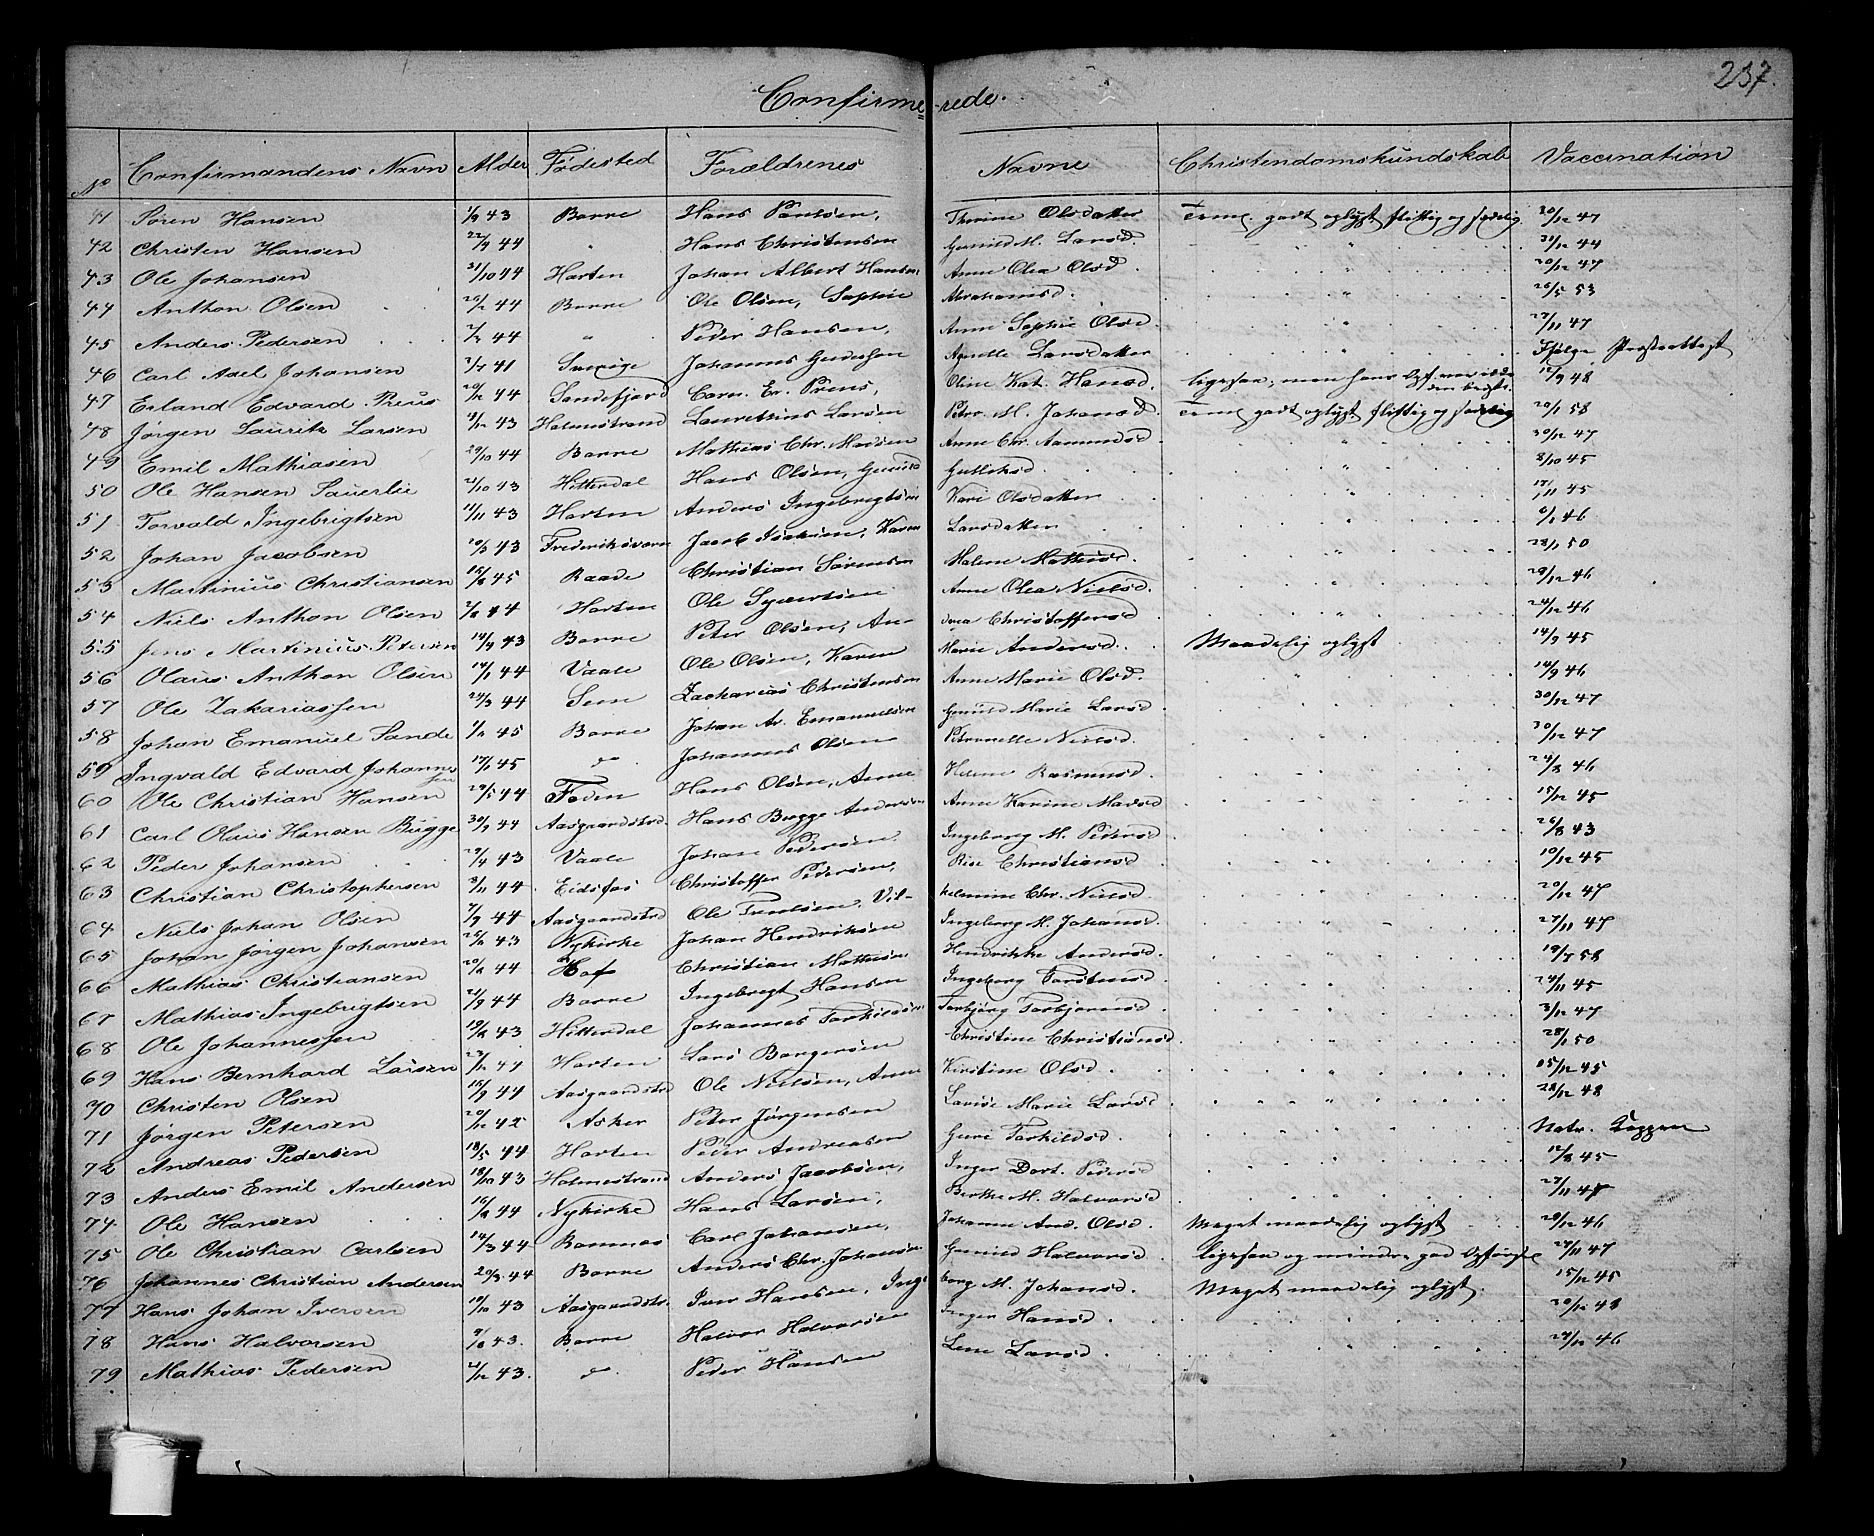 Confirmerede. 237.
No Confirmandens Navn Alder Fødested Forældrenes Navne Christendomskundskab Vaccination
41 Søren Hansen 1/9 43 Borre Hans Olsdatter godt oplyst flittig og sædelig 20/12 47
42 Christen Hansen 22/9 44 " Hans Christensen Gunild M. Larsd. " 31/12 44
43 Ole Johansen 31/10 44 Horten Johan Albert Hansen Anne Olea Olsd. 20/12 47
44 Anthon Olsen 44 Borre Ole Olsen, Sophie Abrahamsd. " 26/5 53
45 Anders Pedersen 44 " Peder Hansen, Anne Sophie Olsd. 27/11 47
46 Carl Axel Johansen 41 Sverige Johannes Larsdatter Ifølge Præsteattest
47 Erland Edvard Preus 44 Sandefjord Oline Kat. Hansd. ligesaa, men 12/9 48
48 Jørgen Lauritz Larsen 43 Holmestrand Laurettius Larsen Petr. M. Johansd. godt oplyst flittig og sædelig 20/1 58
49 Emil Mathiasen 29/10 44 Borre Mathias Chr. Anne Chr. Aamundsd. " 30/12 47
50 Ole Hansen Sauerlie 21/10 43 Hitterdal Hans Olsen, Gunild Gulliksd. " 8/10 45
51 Torvald Ingebrigtsen 11/11 43 Horten Anders Ingebrigtsen Kari Olsdatter " 17/11 45
52 Johan Jacobsen 10/3 43 Frederiksværn Jacob Isaksen, Karen Larsdatter 6/1 46
53 Martinius Christiansen 15/8 45 Raade Christian Sørensen Malene Mathisd. " 28/1 50
54 Niels Anthon Olsen 44 Horten Ole Syvertsen Anne Olea Nielsd. 29/12 46
55 Jens Martinius Petersen 14/9 43 Borre Peter Olsen, An- drea Christoffersd. " 24/12 46
56 Olaus Anthon Olsen 14/1 44 Vaale Ole Olsen, Karen Marie Andersd. Maadelig oplyst 14/9 45
57 Ole Zakariassen 24/3 44 Sem Zacharias Christensen Anne Marie Olsd. " 14/9 46
58 Johan Emanuel Sande 45 Borre Johan Ar. Emanuelsen Gunild Marie Larsd. 30/12 47
59 Ingvald Edvard Johannessen 17/1 45 do Johannes Olsen Petronelle Nielsd. " 30/12 47
60 Ole Christian Hansen 29/5 44 Hans Olsen, Anne Helene Rasmusd. " 24/8 46
61 Carl Olaus Hansen Bugge 30/9 44 Aasgaardstrd Hans Bugge Andersen Anne Karine Madsd. 15/12 45
62 Peder Johansen 29/4 43 Vaale Johan Pedersen Ingeborg M. Pedersd. 26/8 43
63 Christian Christophersen 8/11 44 Eidsfos Christoffer Pedersen, Christiansd. " 10/12 45
64 Niels Johan Olsen 7/9 44 Aasgaardstrd Ole Truelsen, Vil- helmine Chr. Nielsd. 20/12 47
65 Johan Jørgen Johansen 43 Nykirke Johan Hendriksen Ingeborg M. Johansd. " 27/11 47
66 Mathias Christiansen 44 Hof Christian Mathisen Hendrikke Andersd. 19/7 58
67 Mathias Ingebrigtsen 21/9 44 Borre Ingebrigt Hansen Ingeborg Torstensd. " 24/11 45
68 Ole Johannessen 43 Hitterdal Johannes Torkildsen Torbjørg Torbjørnsd. 3/12 47
69 Hans Bernhard Larsen 44 Horten Lars Borgersen Christine Christiansd. 28/1 50
70 Christen Olsen 15/9 44 Aasgaardstrd Ole Nielsen, Anne Kirstine Olsd. 05/12 45
71 Jørgen Petersen 20/12 42 Asker Peter Jørgensen Lovise Marie Larsd. 28/12 48
72 Andreas Pedersen 18/5 44 Horten Peder Andreasen Guri Torkildsd. Natr. Kopper
73 Anders Emil Andersen 18/10 43 Holmestrand Anders Jacobsen, Inger Dort. Pedersd. 12/8 45
74 Ole Hansen 44 Nykirke Hans Larsen, Berthe M. Halvorsd. 27/11 47
75 Ole Christian Carlsen 14/3 44 Ramnes Carl Johansen, Johanne And. Olsd. Meget maadelig oplyst 20/12 46
76 Johannes Christian Andersen 20/3 44 Borre Anders Chr. Johansen Gunild Halvorsd. ligesaa og mindre god 27/11 47
77 Hans Johan Iversen 19/10 43 Aasgaardstr. Iver Hansen, Inge borg M. Johansd. Meget maadelig oplyst. 15/12 45
78 Hans Halvorsen 43. Borre Halvor Halvorsen Inger Hansd. 20/12 48
79 Mathias Pedersen 43. do. Peder Hansen Lene Larsd. 27/12 46